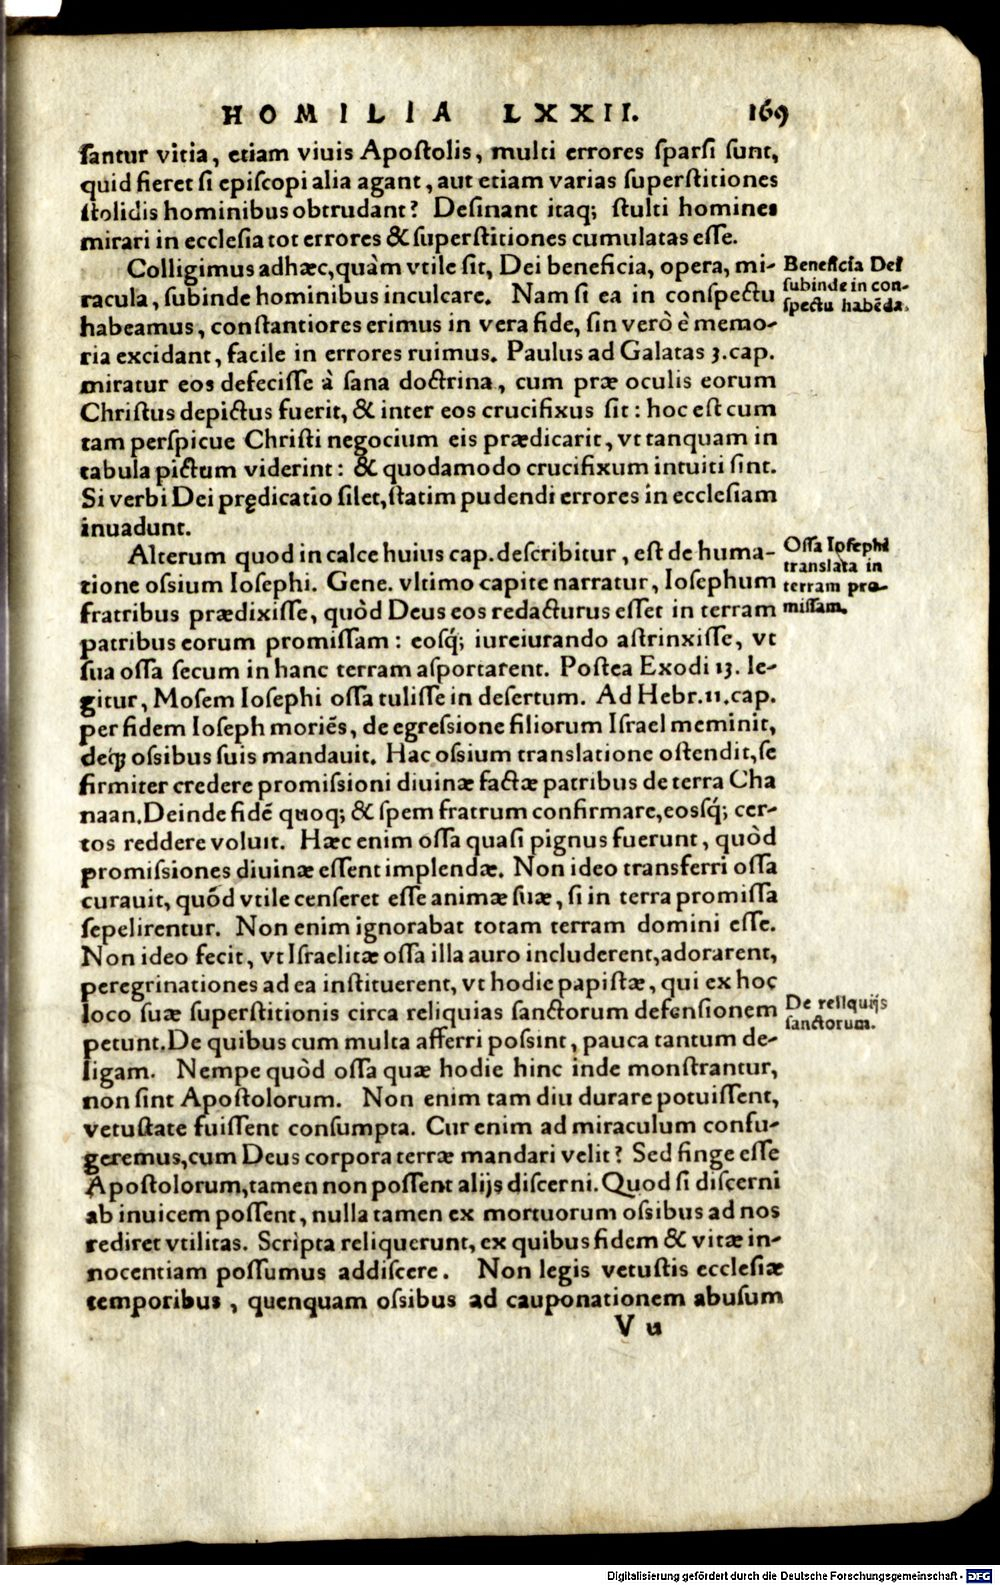 HOMILIA LXXII. 169
santur vitia, etiam viuis Apostolis, multi errores sparsi sunt,
quid fieret si episcopi alia agant, aut etiam varias superstitiones
stolidis hominibus obtrudant? Desinant itaq; stulti homines
mirari in ecclesia tot errores & superstitiones cumulatas esse.
Colligimus adhæc, quàm vtile sit, Dei beneficia, opera, mi-
racula, subinde hominibus inculcare. Nam si ea in conspectu
habeamus, constantiores erimus in vera fide, sin verò è memo-
ria excidant, facile in errores ruimus. Paulus ad Galatas 3. cap.
miratur eos defecisse à sana doctrina, cum præ oculis eorum
Christus depictus fuerit, & inter eos crucifixus sit: hoc est cum
tam perspicue Christi negocium eis prædicarit, vt tanquam in
tabula pictum viderint: & quodamodo crucifixum intuiti sint.
Si verbi Dei prędicatio silet, statim pudendi errores in ecclesiam
inuadunt.
Beneficia Dei
subinde in con-
spectu habēda.
Alterum quod in calce huius cap. describitur, est de huma-
tione ossium Iosephi. Gene. vltimo capite narratur, Iosephum
fratribus prædixisse, quòd Deus eos redacturus esset in terram
patribus eorum promissam: eosq́; iureiurando astrinxisse, vt
sua ossa secum in hanc terram asportarent. Postea Exodi 13. le-
gitur, Mosem Iosephi ossa tulisse in desertum. Ad Hebr. 11. cap.
per fidem Ioseph moriēs, de egressione filiorum Israel meminit,
deq́; ossibus suis mandauit. Hac ossium translatione ostendit, se
firmiter credere promissioni diuinæ factæ patribus de terra Cha
naan. Deinde fidē quoq; & spem fratrum confirmare, eosq́; cer-
tos reddere voluit. Hæc enim ossa quasi pignus fuerunt, quòd
promissiones diuinæ essent implendæ. Non ideo transferri ossa
curauit, quód vtile censeret esse animæ suæ, si in terra promissa
sepelirentur. Non enim ignorabat totam terram domini esse.
Non ideo fecit, vt Israelitæ ossa illa auro includerent, adorarent,
peregrinationes ad ea instituerent, vt hodie papistæ, qui ex hoc
loco suæ superstitionis circa reliquias sanctorum defensionem
petunt. De quibus cum multa afferri possint, pauca tantum de-
ligam. Nempe quòd ossa quæ hodie hinc inde monstrantur,
non sint Apostolorum. Non enim tam diu durare potuissent,
vetustate fuissent consumpta. Cur enim ad miraculum confu-
geremus, cum Deus corpora terræ mandari velit? Sed finge esse
Apostolorum, tamen non possent alijs discerni. Quod si discerni
ab inuicem possent, nulla tamen ex mortuorum ossibus ad nos
rediret vtilitas. Scripta reliquerunt, ex quibus fidem & vitæ in-
nocentiam possumus addiscere. Non legis vetustis ecclesiæ
temporibus, quenquam ossibus ad cauponationem abusum
Ossa Iosephi
translata in
terram pro-
missam.
De reliquijs
sanctorum.
V u
Digitalisierung gefördert durch die Deutsche Forschungsgemeinschaft - DFG